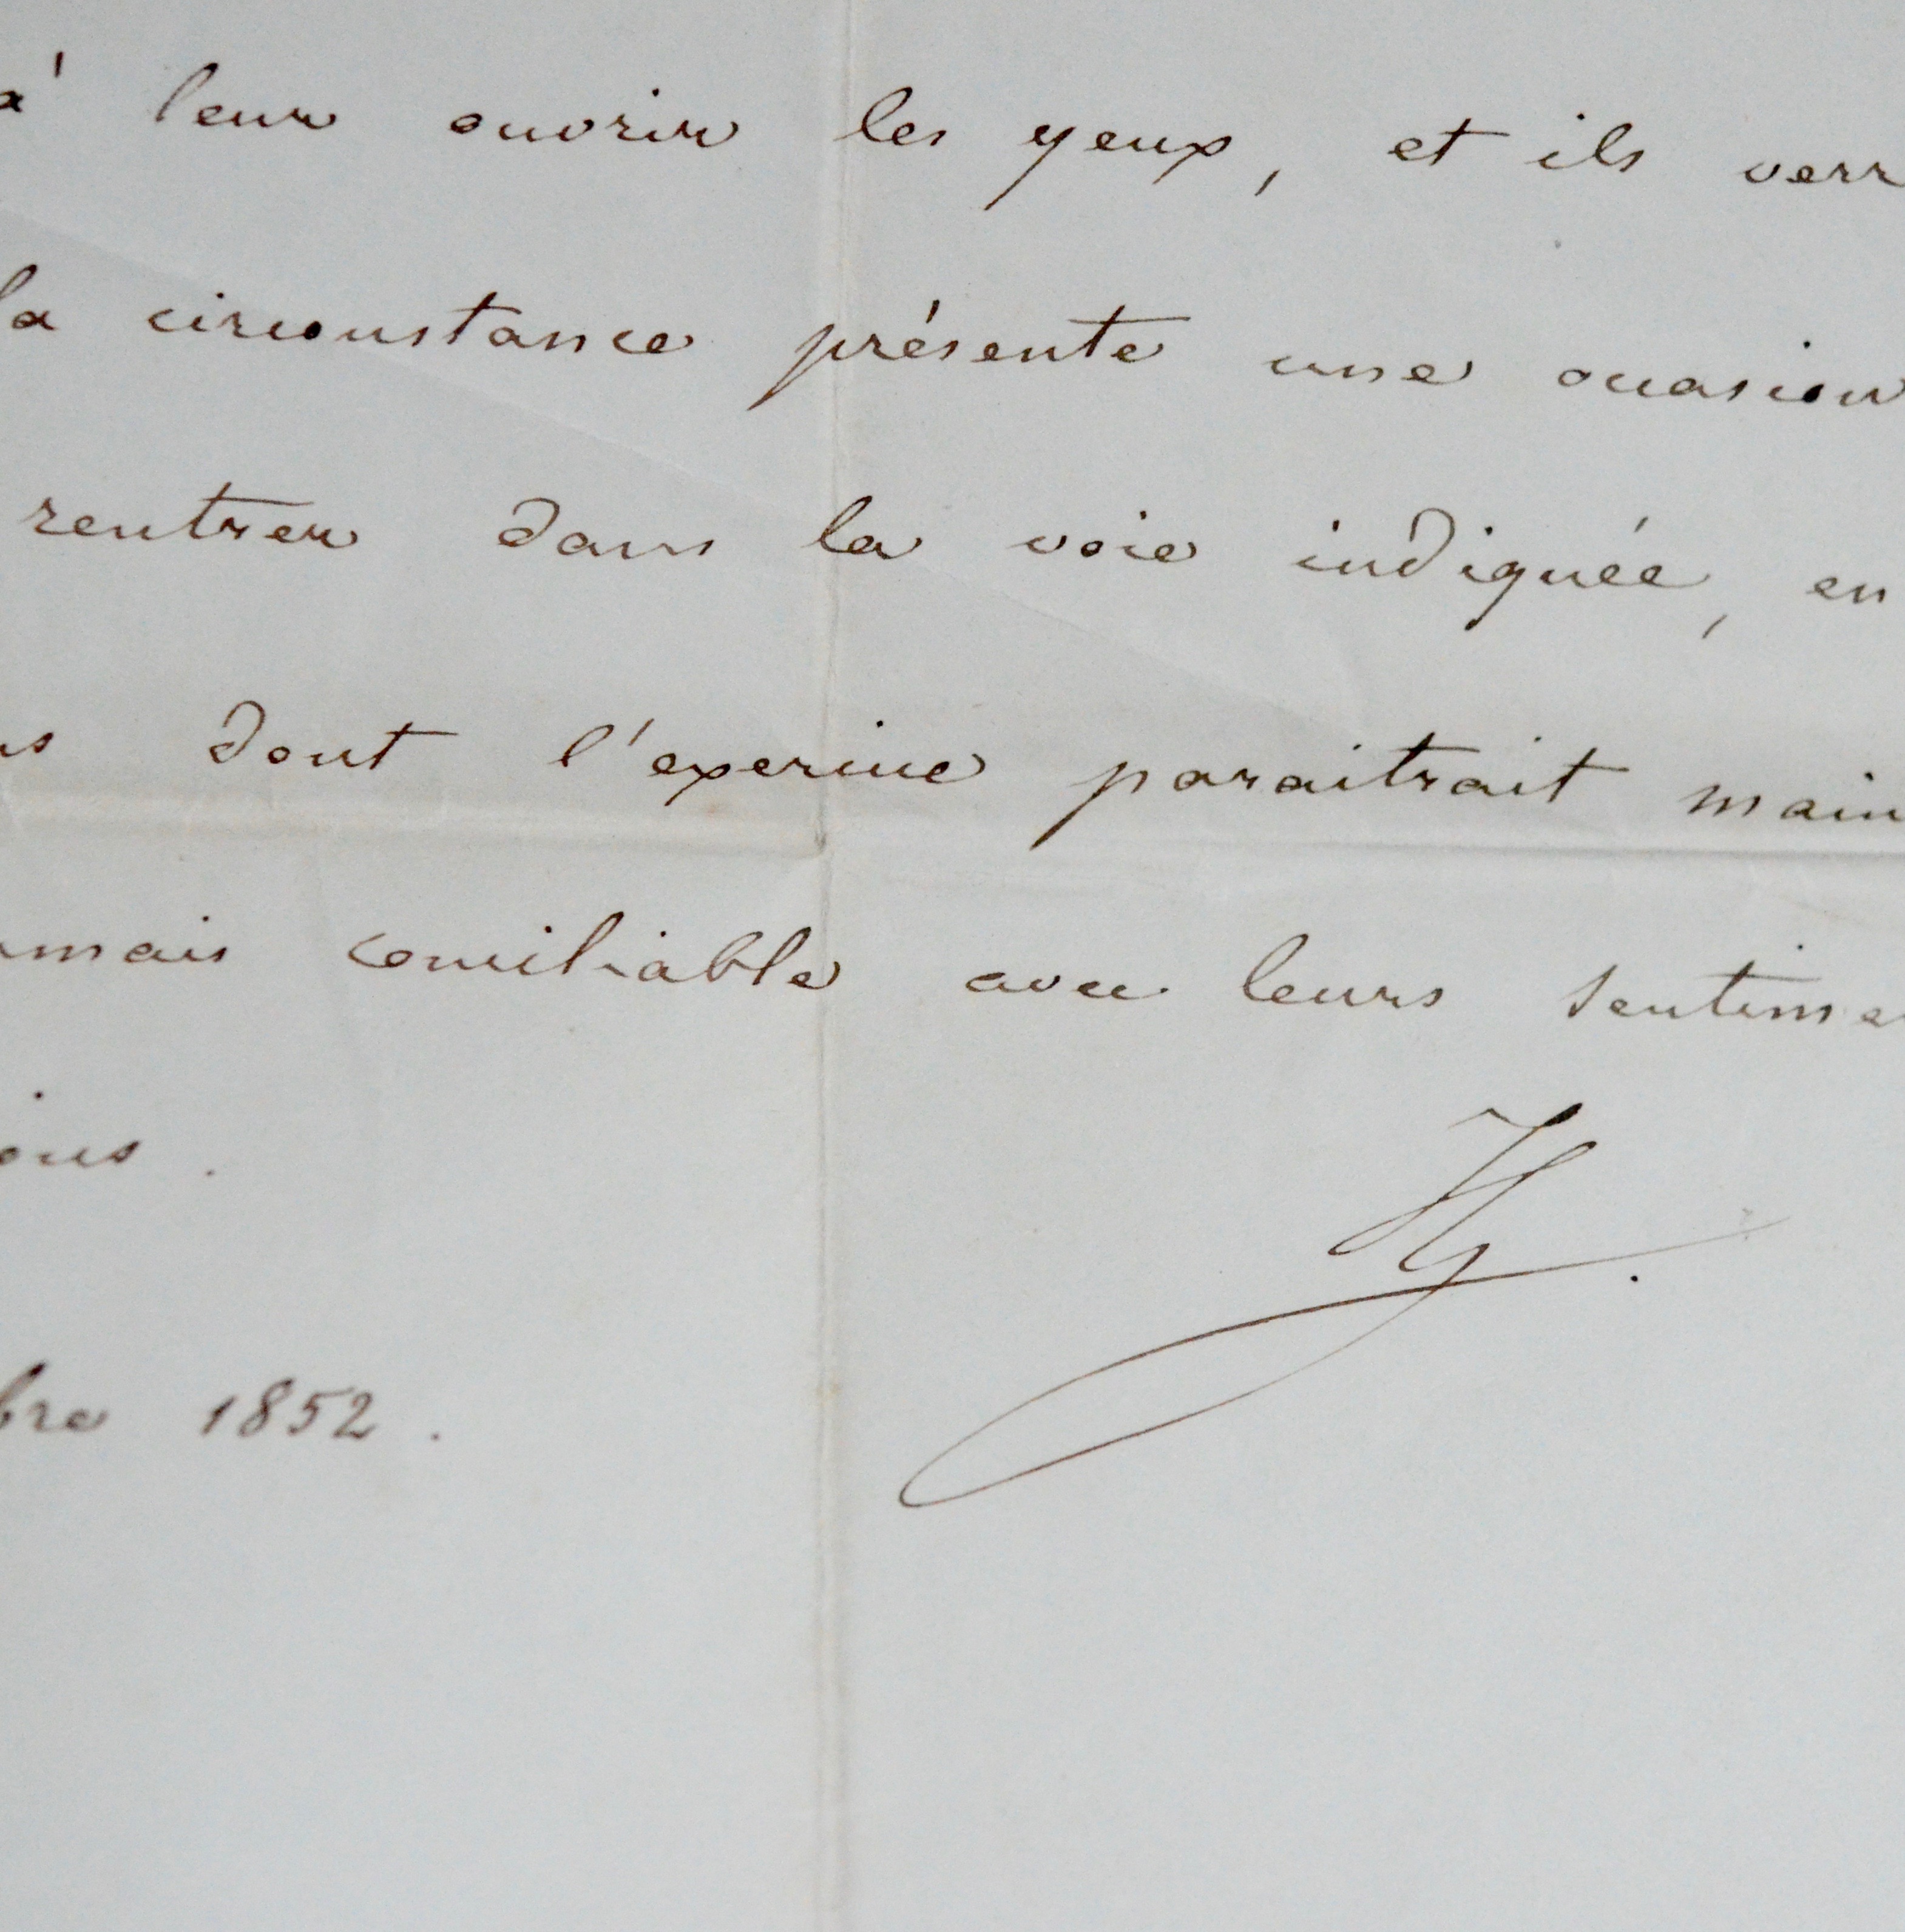 à leur ouvrir les yeux, et ils verr
la circonstance présente une occasion
rentrer dans la voie indiquée, en
us dont l'exercice paraitrait main
amais conciliable avec leurs sentime
ions.
H.
bre 1852.